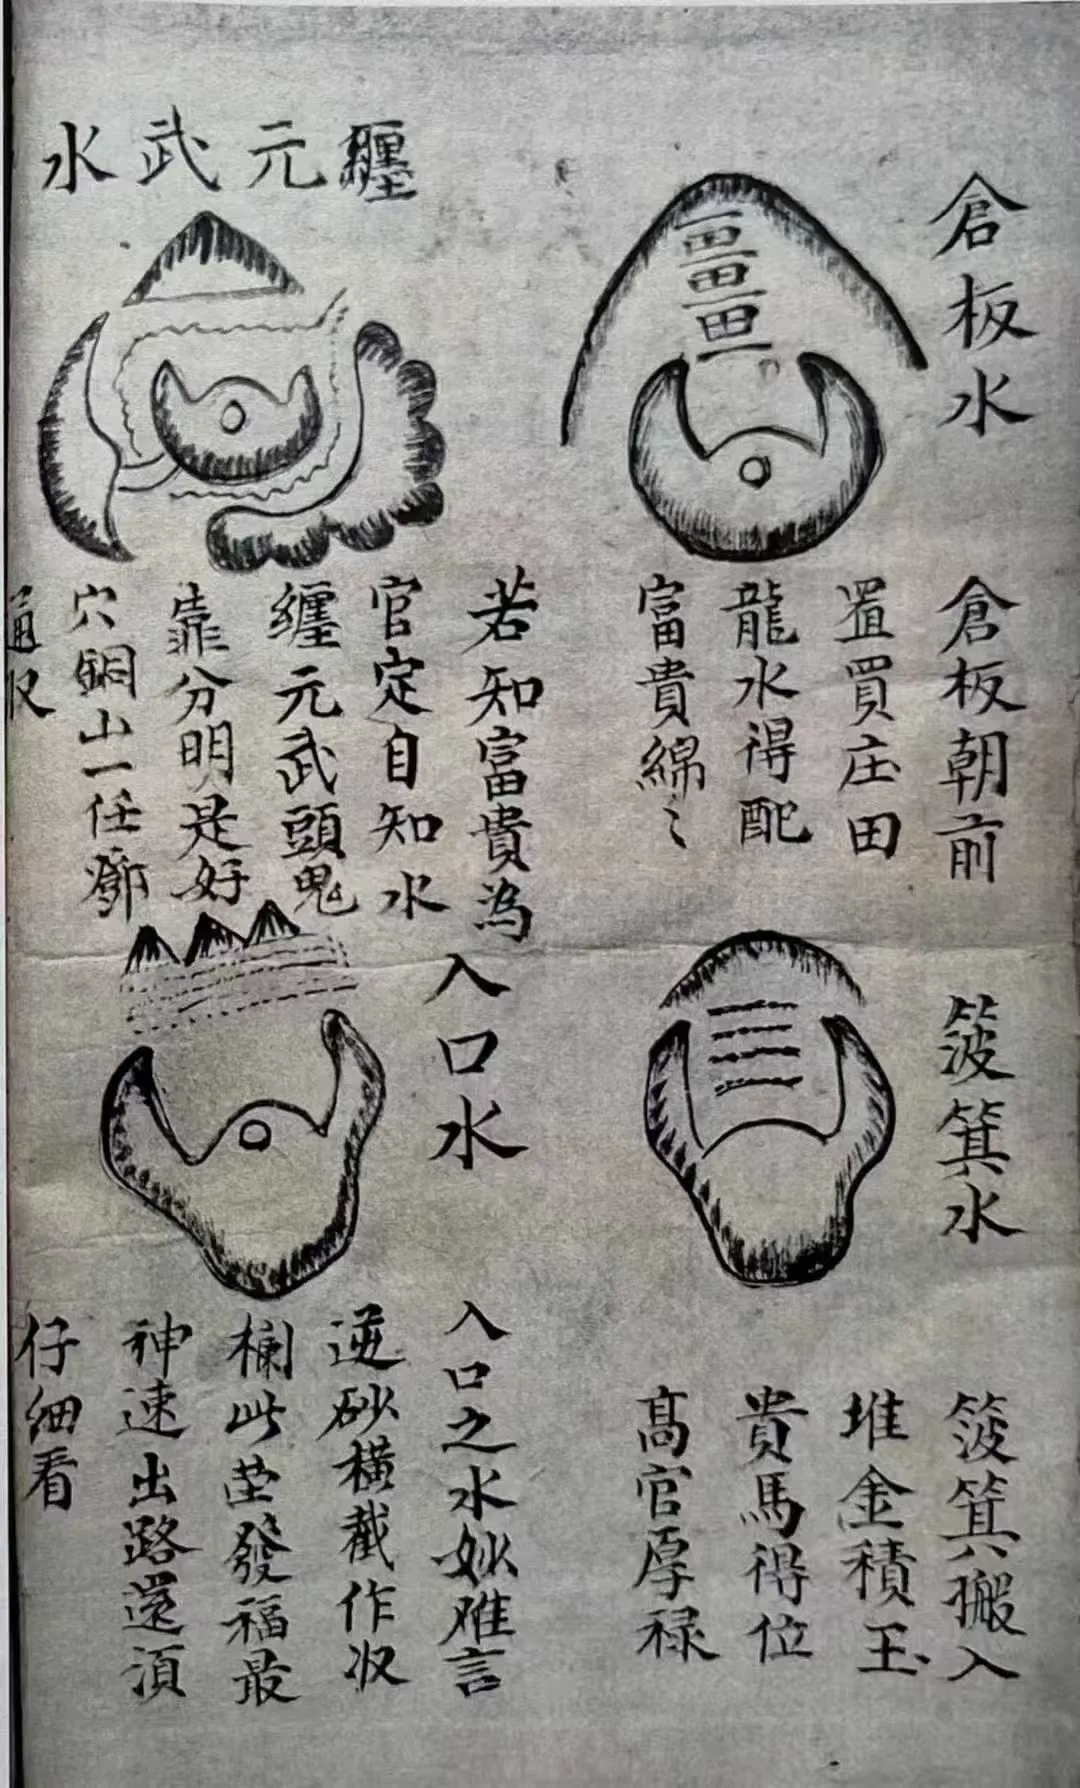 倉板水
倉板朝前
置買庄田
龍水得配
富貴綿〻
纏元武水
若知富貴為
官定自知水
纏元武頭鬼
靠分明是好
穴銅山一任鄧
通収
箥箕水
箥箕搬入
堆金積玉
貴馬得位
高官厚禄
入口水
入口之水妙难言
逆砂橫截作収
欄此茔發福最
神速出路還須
仔細看